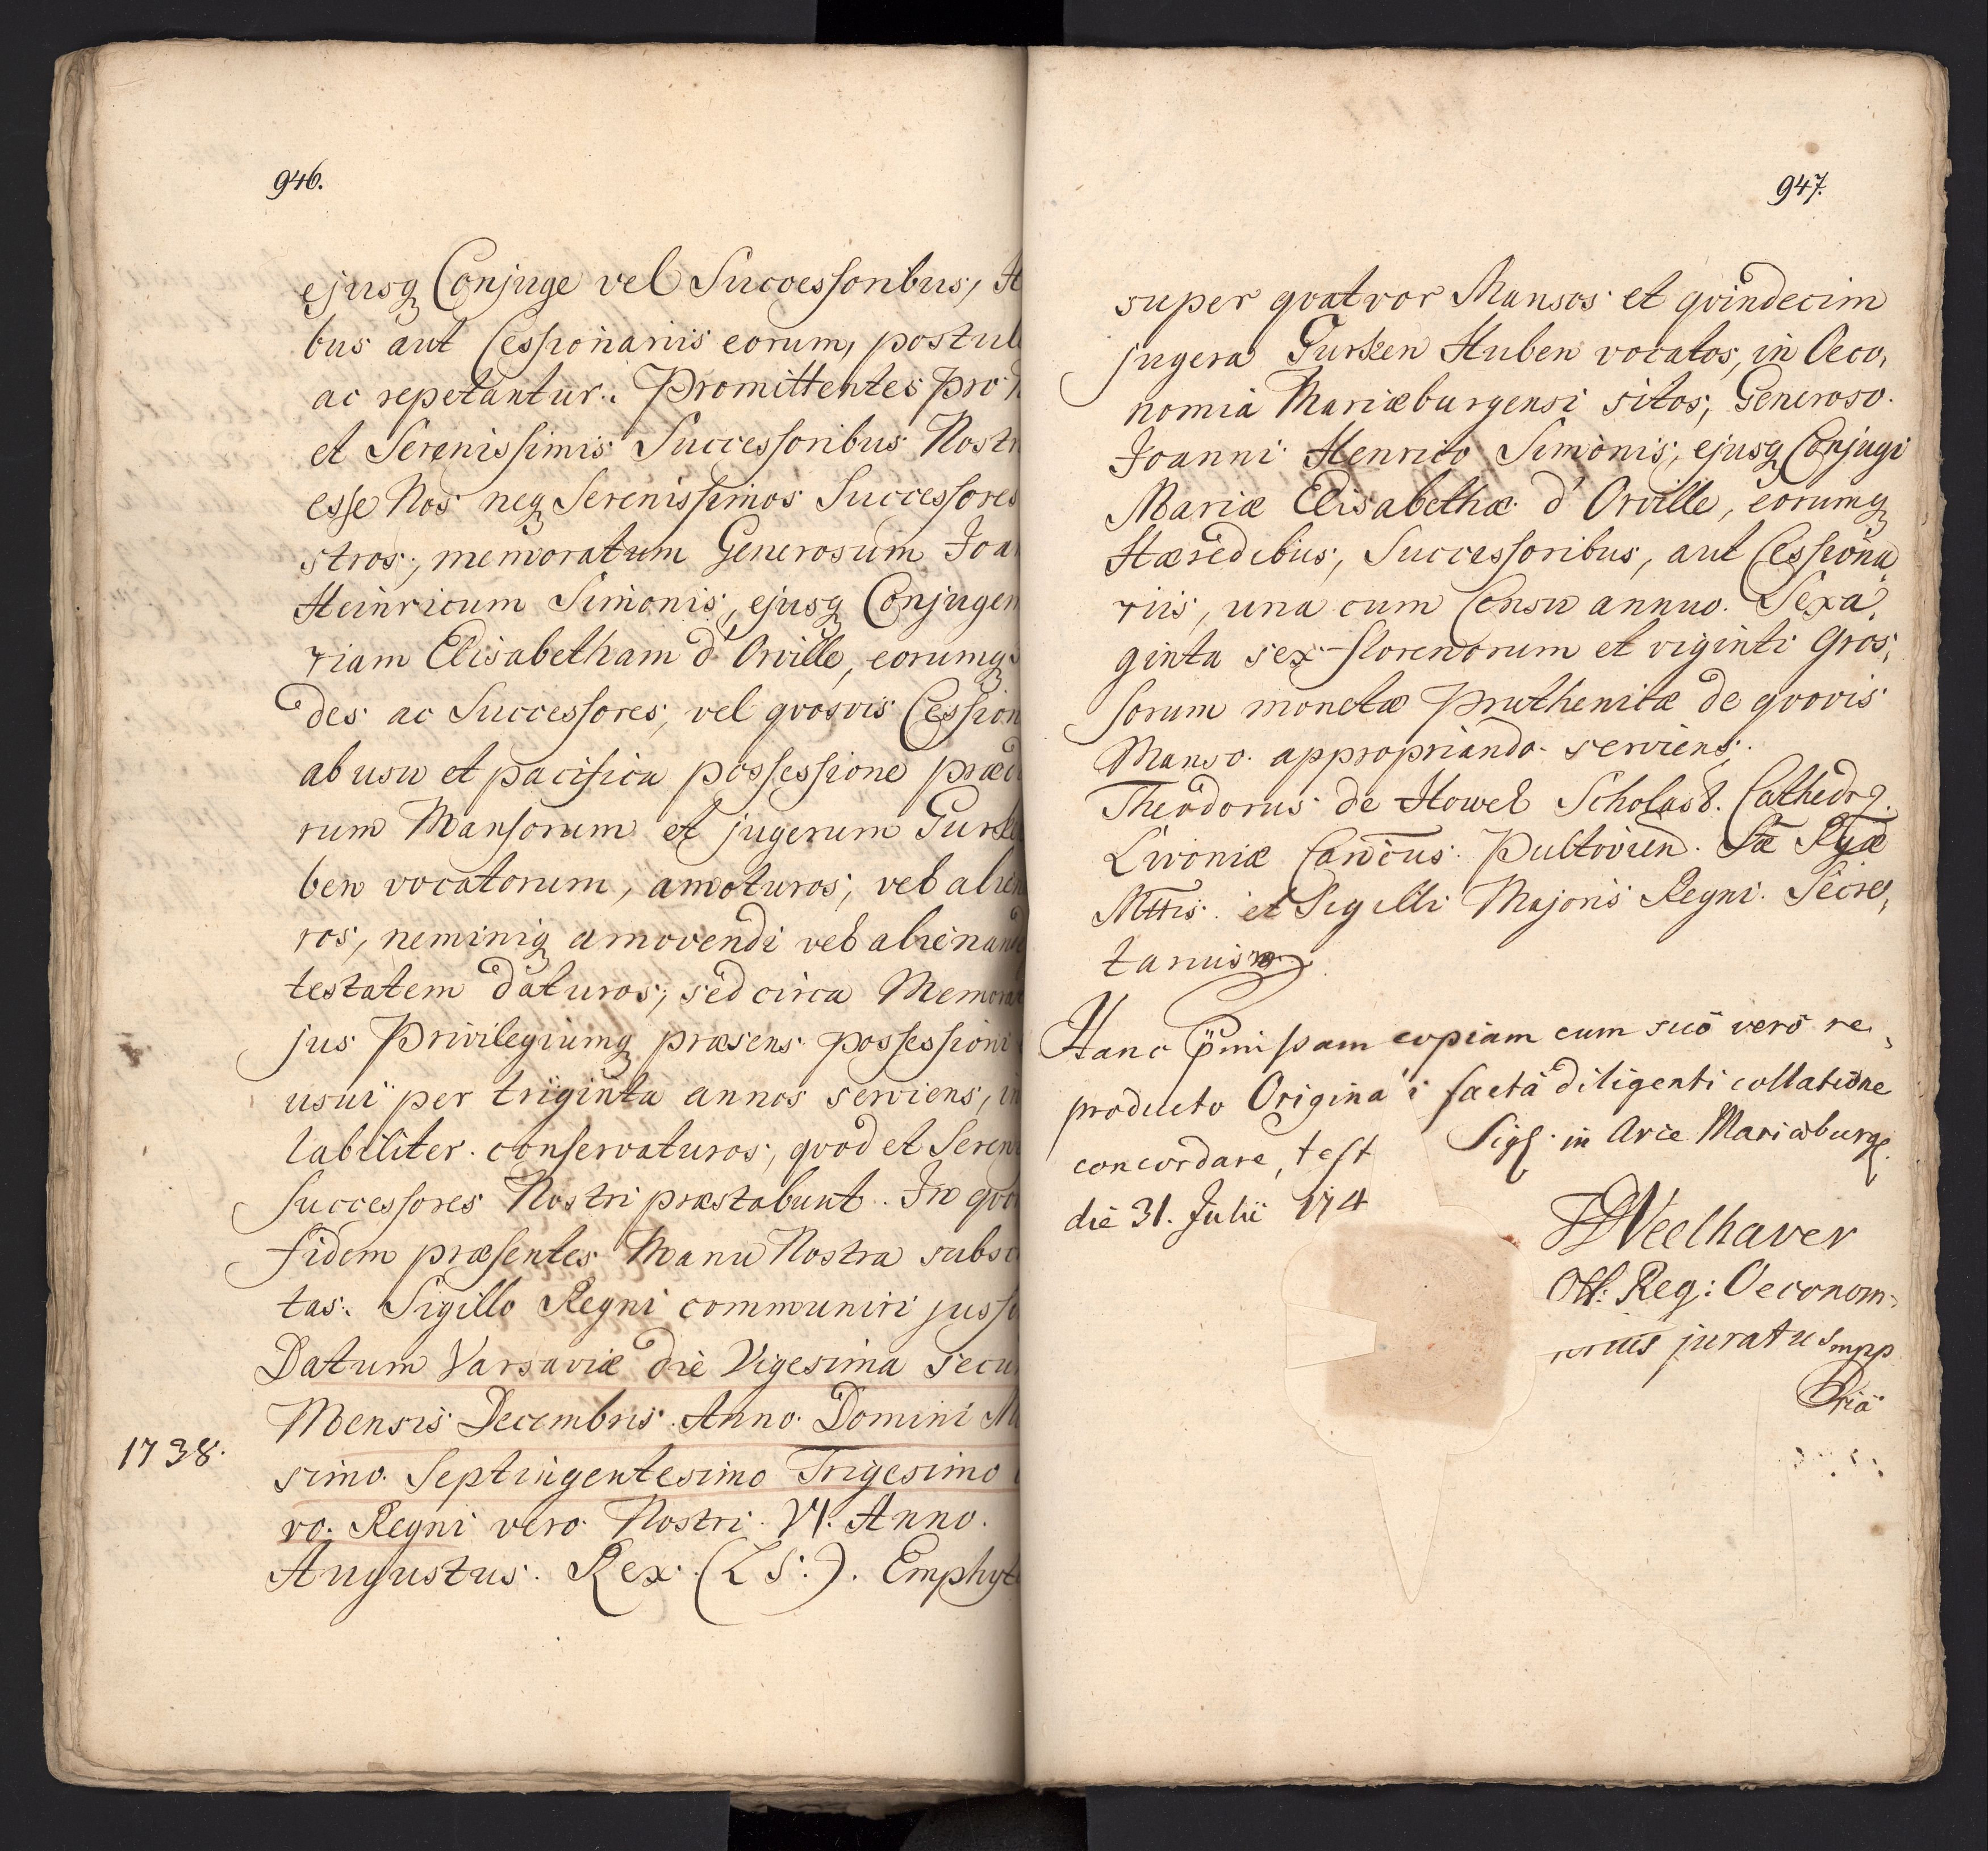 946.
ejusq Conjuge vel Successoribus, H
bus aut Cessionariis eorum, postul
ac repetantur. Promittentes pro
et Serenissimis Successoribus Nostr
esse Nos neq Serenissimos Successores
stros, memoratum Generosum Joa
Heinricum Simonis, ejusq Conjugem
riam Elisabetham d'Orville, eorumq
des ac Successores, vel qvosvis Cession
ab usu et pacifica possessione præd
rum Mansorum et jugerum Gurk
ben vocatorum, amoturos, vel alien
ros, neminiq amovendi vel alienand
testatem daturos, sed circa Memorat
jus Privilegiumq præsens possessioni
usui per triginta annos serviens, in
labiliter conservaturos, qvod et Seren
Successores Nostri præstabunt. In qvo
fidem præsentes Manu Nostra subsc
tas. Sigillo Regni communiri jussi
Datum Varsaviæ die Vigesima Secu
Mensis Decembris Anno Domini M
1738.
simo Septingentesimo Trigesimo
vo. Regni vero Nostri VI. Anno.
Augustus Rex. (LS:). Emphyt
947.
super qvatvor Mansos et qvindecim
jugera Gurken Huben vocatos, in Oeco,
nomia Mariæburgensi sitos, Generoso
Joanni Henrico Simonis, ejusq Conjugi
Mariæ Elisabethæ d'Orville, eorumq
Hæredibus, Successoribus, aut Cessiona,
riis, una cum Censu annuo Sexa,
ginta sex florenorum et viginti Gros,
sorum monetæ Pruthenicæ de qvovis
Manso appropriando serviens.
Theodorus de Howel Scholast. Cathedr
Livoniæ Canōcus Pultovien. Sæ Rgæ
Mttis et Sigilli Majoris Regni Secre,
tarius
Hanc copiam cum suo vero re,
producto Origina i facta diligenti collatione
concordare, test Sigl. in Arce Mariæburg.
die 31. Julii 174
Weelhaver
Off: Reg: Oeconom
juratus mpp
pria